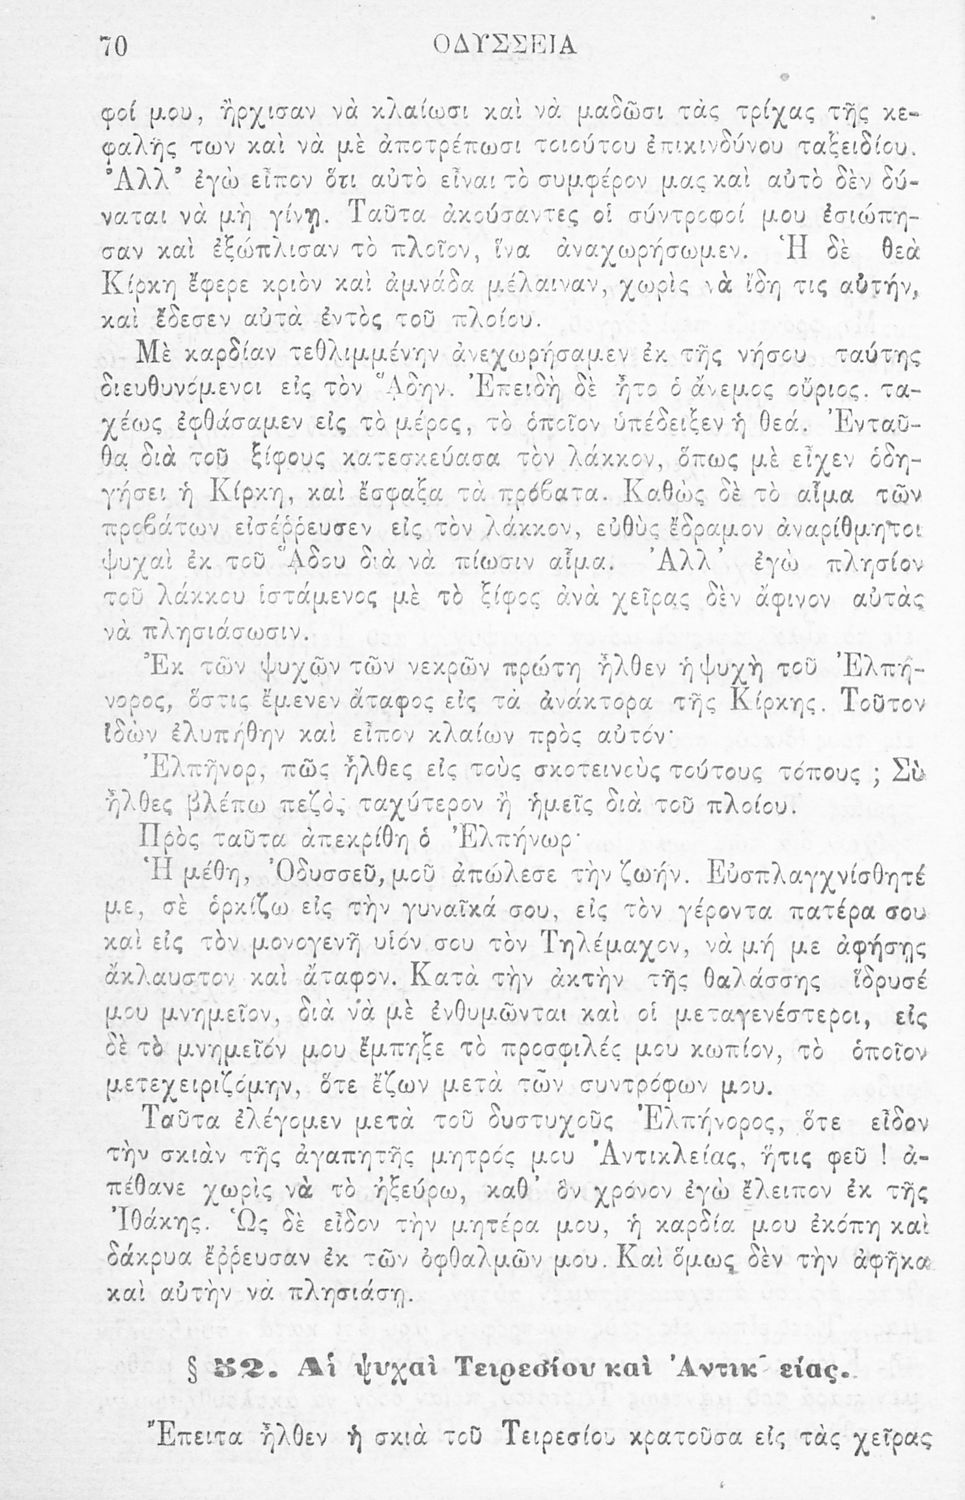 70 ΟΔΥΣΣΕΙΑ
φοί μου, ἤρχισαν νὰ κλαίωσι καὶ νὰ μαδῶσι τὰς τρίχας τῆς κε-
φαλῆς των καὶ νὰ μὲ ἀποτρέπωσι τοιούτου ἐπικινδύνου ταξειδίου.
Ἀλλ' ἐγὼ εἶπον ὅτι αὐτὸ εἶναι τὸ συμφέρον μας καὶ αὐτὸ δὲν δύ-
ναται νὰ μὴ γίνῃ. Ταῦτα ἀκούσαντες οἱ σύντροφοί μου ἐσιώπη-
σαν καὶ ἐξώπλισαν τὸ πλοῖον, ἵνα ἀναχωρήσωμεν. Ἡ δὲ θεὰ
Κίρκη ἔφερε κριὸν καὶ ἀμνάδα μέλαιναν, χωρὶς νὰ ἴδῃ τις αὐτήν,
καὶ ἔδεσεν αὐτὰ ἐντὸς τοῦ πλοίου.
Μὲ καρδίαν τεθλιμμένην ἀνεχωρήσαμεν ἐκ τῆς νήσου ταύτης
διευθυνόμενοι εἰς τὸν Ἅδην. Ἐπειδὴ δὲ ἦτο ὁ ἄνεμος οὔριος. τα-
χέως ἐφθάσαμεν εἰς τὸ μέρος, τὸ ὁποῖον ὑπέδειξεν ἡ θεά. Ἐνταῦ-
θα διὰ τοῦ ξίφους κατεσκεύασα τὸν λάκκον, ὅπως μὲ εἶχεν ὁδη-
γήσει ἡ Κίρκη, καὶ ἔσφαξα τὰ πρόβατα. Καθὼς δὲ τὸ αἷμα τῶν
προβάτων εἰσέῤῥευσεν εἰς τὸν λάκκον, εὐθὺς ἔδραμον ἀναρίθμητοι
ψυχαὶ ἐκ τοῦ Ἅδου διὰ νὰ πίωσιν αἷμα. Ἀλλ' ἐγὼ πλησίον
τοῦ λάκκου ἱστάμενος μὲ τὸ ξίφος ἀνὰ χεῖρας δὲν ἄφινον αὐτὰς
νὰ πλησιάσωσιν.
Ἐκ τῶν ψυχῶν τῶν νεκρῶν πρώτη ἦλθεν ἡ ψυχὴ τοῦ Ἐλπή-
νορος, ὅστις ἔμενεν ἄταφος εἰς τὰ ἀνάκτορα τῆς Κίρκης. Τοῦτον
ἰδὼν ἐλυπήθην καὶ εἶπον κλαίων πρὸς αὐτόν·
Ἐλπῆνορ, πῶς ἦλθες εἰς τοὺς σκοτεινοὺς τούτους τόπους ; Σὺ
ἦλθες βλέπω πεζὸς ταχύτερον ἢ ἡμεῖς διὰ τοῦ πλοίου.
Πρὸς ταῦτα ἀπεκρίθη ὁ Ἐλπήνωρ·
Ἡ μέθη, Ὀδυσσεῦ, μοῦ ἀπώλεσε τὴν ζωήν. Εὐσπλαγχνίσθητέ
με, σὲ ὁρκίζω εἰς τὴν γυναῖκά σου, εἰς τὸν γέροντα πατέρα σου
καὶ εἰς τὸν μονογενῆ υἱόν σου τὸν Τηλέμαχον, νὰ μή με ἀφήσῃς
ἄκλαυστον καὶ ἄταφον. Κατὰ τὴν ἀκτὴν τῆς θαλάσσης ἵδρυσέ
μου μνημεῖον, διὰ νὰ μὲ ἐνθυμῶνται καὶ οἱ μεταγενέστεροι, εἰς
δὲ τὸ μνημεῖόν μου ἔμπηξε τὸ προσφιλές μου κωπίον, τὸ ὁποῖον
μετεχειριζόμην, ὅτε ἔζων μετὰ τῶν συντρόφων μου.
Ταῦτα ἐλέγομεν μετὰ τοῦ δυστυχοῦς Ἐλπήνορος, ὅτε εἶδον
τὴν σκιὰν τῆς ἀγαπητῆς μητρός μου Ἀντικλείας, ἥτις φεῦ ! ἀ-
πέθανε χωρὶς νὰ τὸ ἠξεύρω, καθ' ὃν χρόνον ἐγὼ ἔλειπον ἐκ τῆς
Ἰθάκης. Ὡς δὲ εἶδον τὴν μητέρα μου, ἡ καρδία μου ἐκόπη καὶ
δάκρυα ἔῤῥευσαν ἐκ τῶν ὀφθαλμῶν μου. Καὶ ὅμως δὲν τὴν ἀφῆκα
καὶ αὐτὴν νὰ πλησιάσῃ.
§ 52. Αἱ ψυχαὶ Τειρεσίου καὶ Ἀντικ είας.
Ἔπειτα ἦλθεν ἡ σκιὰ τοῦ Τειρεσίου κρατοῦσα εἰς τὰς χεῖρας